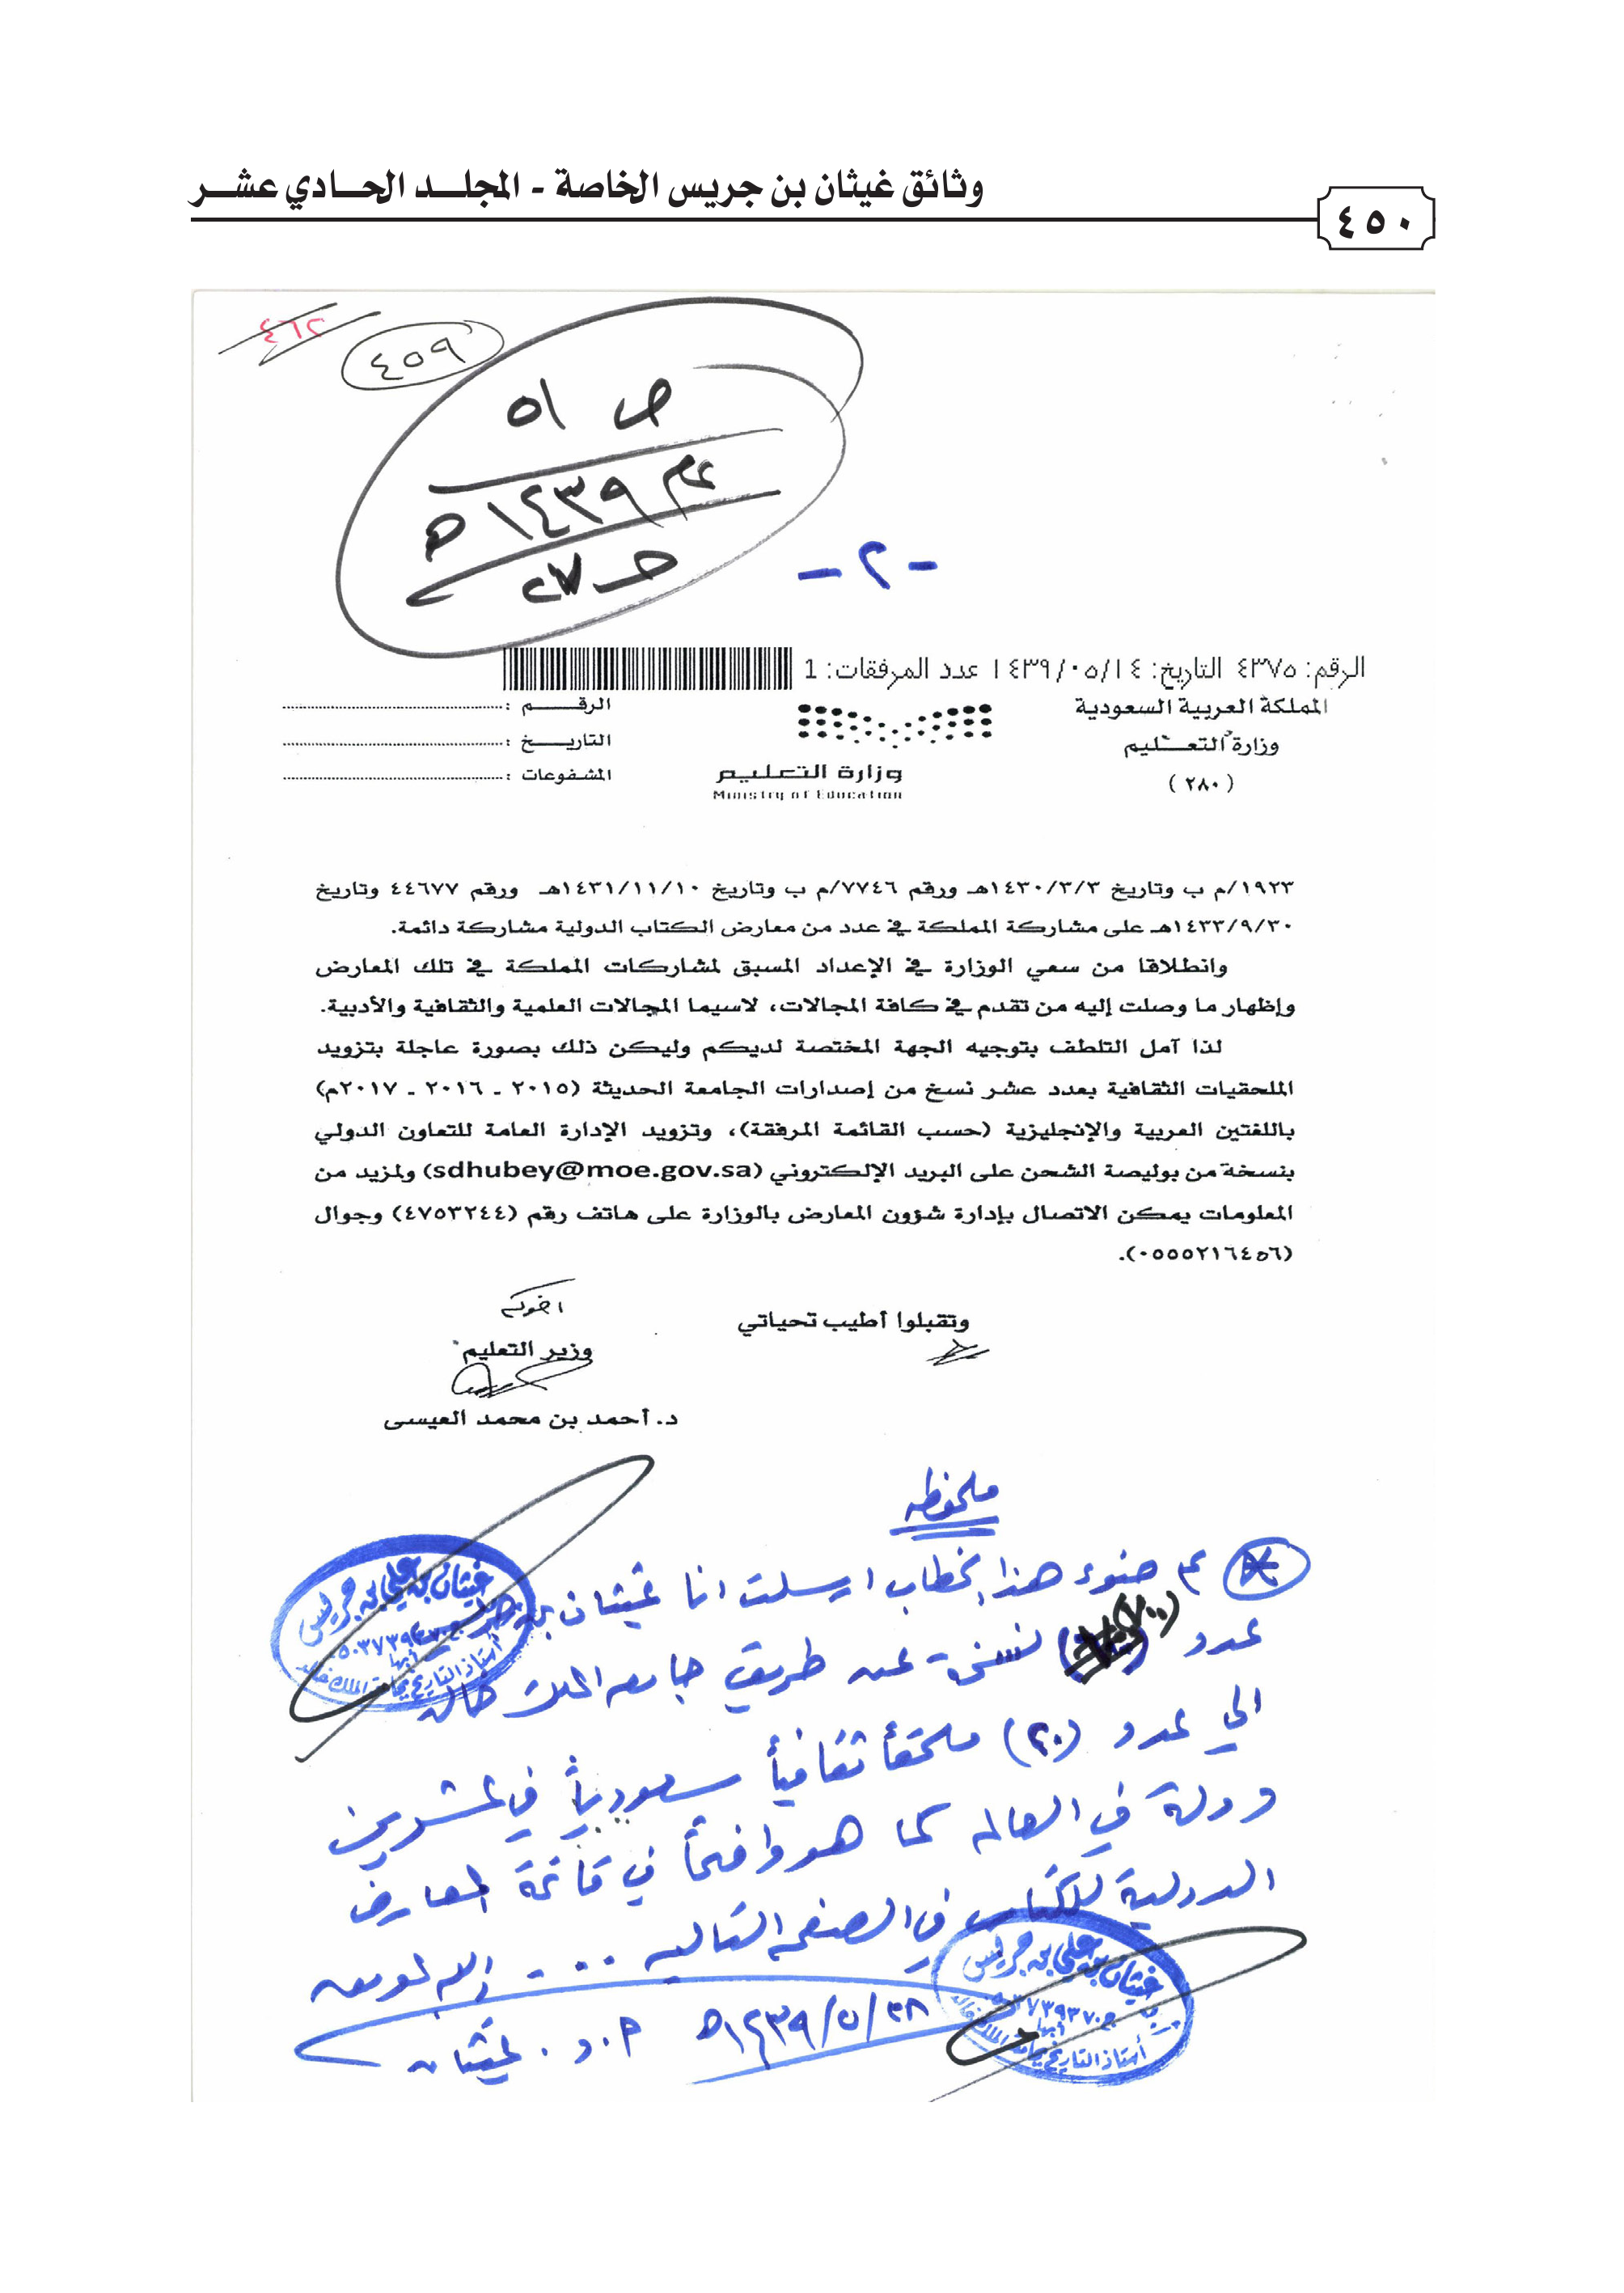 وثائق غيثان بن جريس الخاصة - المجلد الحادي عشر
٤٥٠
٤٦٢
٤٥٩
ص ٥١
عام ١٤٣٩هـ
- ٢ -
الرقم: ٤٣٧٥ التاريخ: ١٤٣٩/٠٥/١٤ عدد المرفقات: 1
المملكة العربية السعودية
وزارة التعليم
(٢٨٠)
وزارة التعليم
Ministry of Education
الرقم :
التاريخ :
المشفوعات :
١٩٢٣/م ب وتاريخ ١٤٣٠/٣/٣هـ ورقم ٧٧٤٦/م ب وتاريخ ١٤٣١/١١/١٠هـ ورقم ٤٤٦٧٧ وتاريخ
١٤٣٣/٩/٣٠هـ على مشاركة المملكة في عدد من معارض الكتاب الدولية مشاركة دائمة.
وانطلاقا من سعي الوزارة في الإعداد المسبق لمشاركات المملكة في تلك المعارض
وإظهار ما وصلت إليه من تقدم في كافة المجالات، لاسيما المجالات العلمية والثقافية والأدبية.
لذا آمل التلطف بتوجيه الجهة المختصة لديكم وليكن ذلك بصورة عاجلة بتزويد
الملحقيات الثقافية بعدد عشر نسخ من إصدارات الجامعة الحديثة (٢٠١٥ - ٢٠١٦ - ٢٠١٧م)
باللغتين العربية والإنجليزية (حسب القائمة المرفقة)، وتزويد الإدارة العامة للتعاون الدولي
بنسخة من بوليصة الشحن على البريد الإلكتروني (sdhubey@moe.gov.sa) ولمزيد من
المعلومات يمكن الاتصال بإدارة شؤون المعارض بالوزارة على هاتف رقم (٤٧٥٣٢٤٤) وجوال
(٠٥٥٥٢١٦٤٥٦).
وتقبلوا أطيب تحياتي
اخوكم
وزير التعليم
د. أحمد بن محمد العيسى
ملحوظه
ضوء هذا الخطاب ارسلت انا غيثان بن جريس
عدد نسخة عن طريق جامعه الملك خالد
الى عدد (٢٠) ملحقاً ثقافياً سعودياً في عشرين
دولة في العالم كما هو واضحاً في قائمة المعارض
الدولية للكتاب في الصفحه التاليه ....
أ.د. غيثان ١٤٣٩/٥/٢٨هـ
غيثان بن علي بن جريس
أبها
أستاذ التاريخ بجامعة الملك خالد
غيثان بن علي بن جريس
أبها
أستاذ التاريخ بجامعة الملك خالد